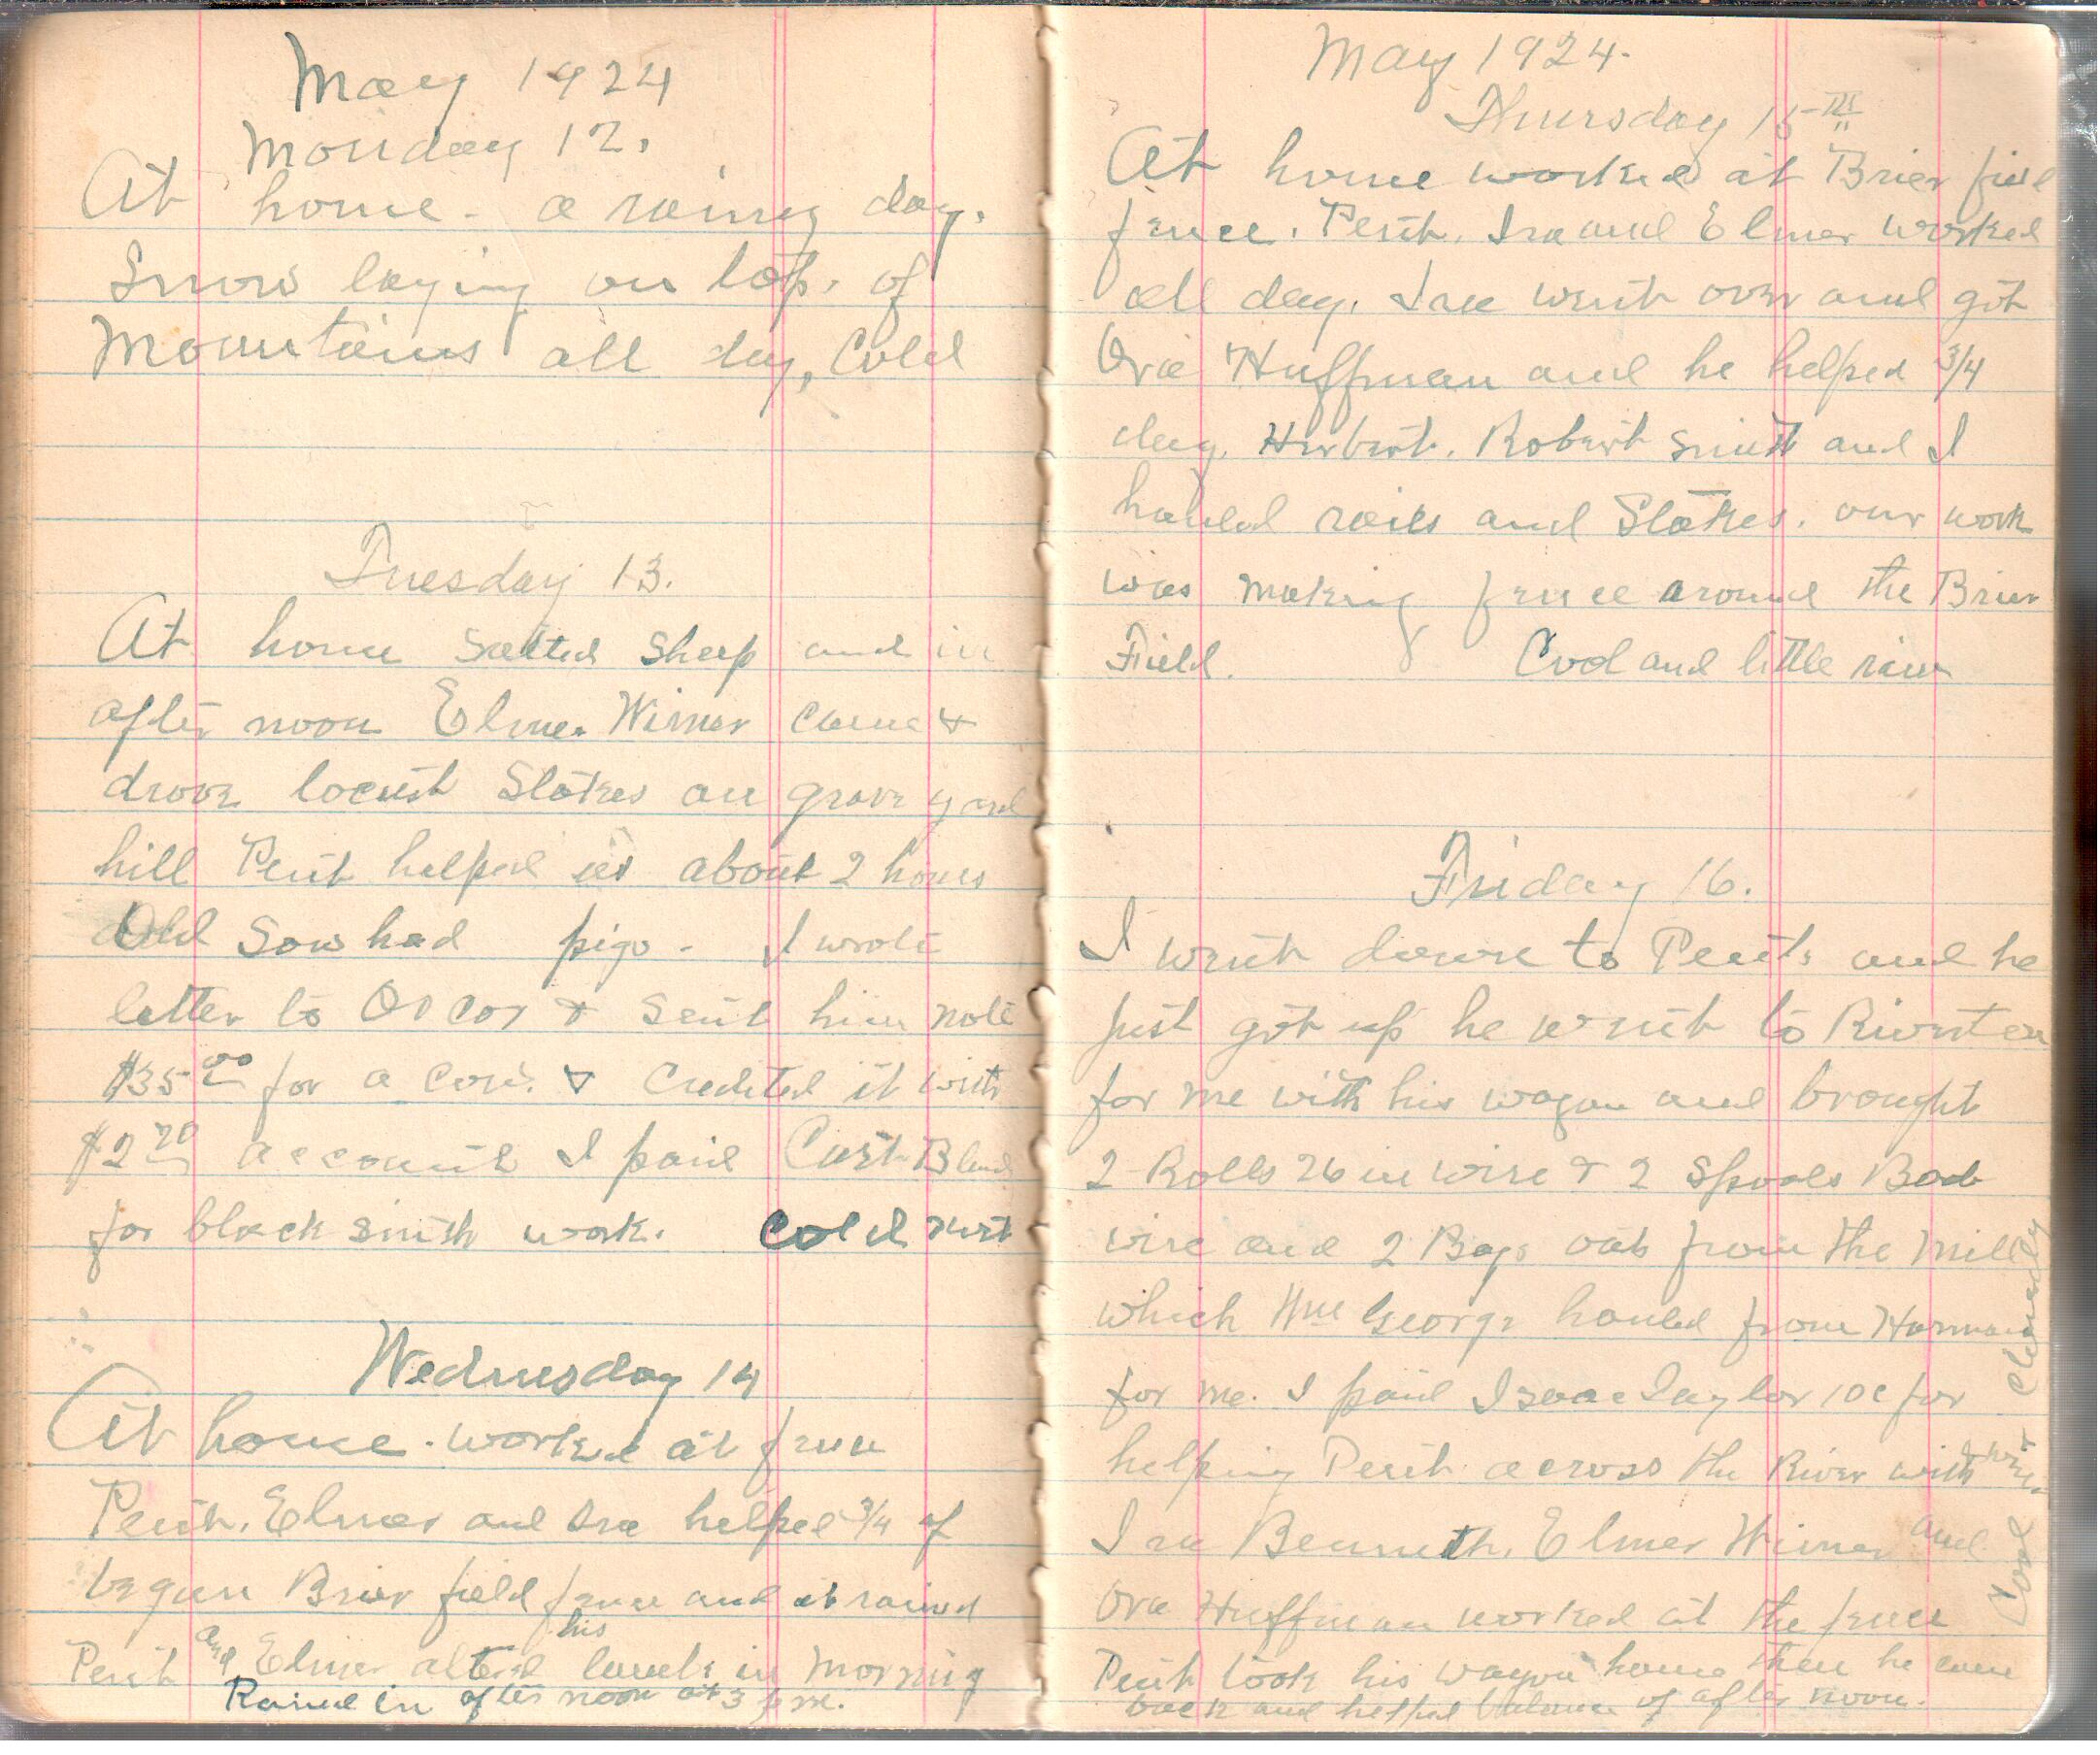 May 1924
Monday 12.
At home - a rainy day.
Snow laying on top. of
Mountains all day, Cold
Tuesday 13.
At home Salted Sheep and in
after noon Elmer Wimer came &
drove locust Stakes on grave yard
hill Pent helped us about 2 hours
Old Sow had pigs - I wrote
letter to & Sent him note
$35.00 for a Cow. & Credited it with
$2 account I paid
for black smith work. Cold
Wednesday 14
At home. worked at fence
Pent. Elmer and Ira helped 3/4 of
began Brier field fence and it rained
Pent and Elmer altered his lambs in Morning
Rained in after noon at 3 pm.
May 1924.
Thursday 15th
At home worked at Brier field
fence. Pent. Ira and Elmer worked
all day. Ira went over and got
Ora Huffman and he helped 3/4
day. Herbert. Robert Smith and I
hauled rails and Stakes. our work
was making fence around the Brier
Field. Cool and little rain
Friday 16.
I went down to Pents and he
just got up he went to Riverton
for me with his wagon and brought
2 Rolls 26 in wire & 2 Spools Barb
wire and 2 Bags oats from the Mill
which Wm George hauled from Harman
for me. I paid Isaac Taylor 10c for
helping Pent across the River with wire.
Ira Bennett, Elmer Wimer and
Ora Huffman worked at the fence
Pent took his wagon home then he came
back and helped balance of after noon.
Cool & Cloudy